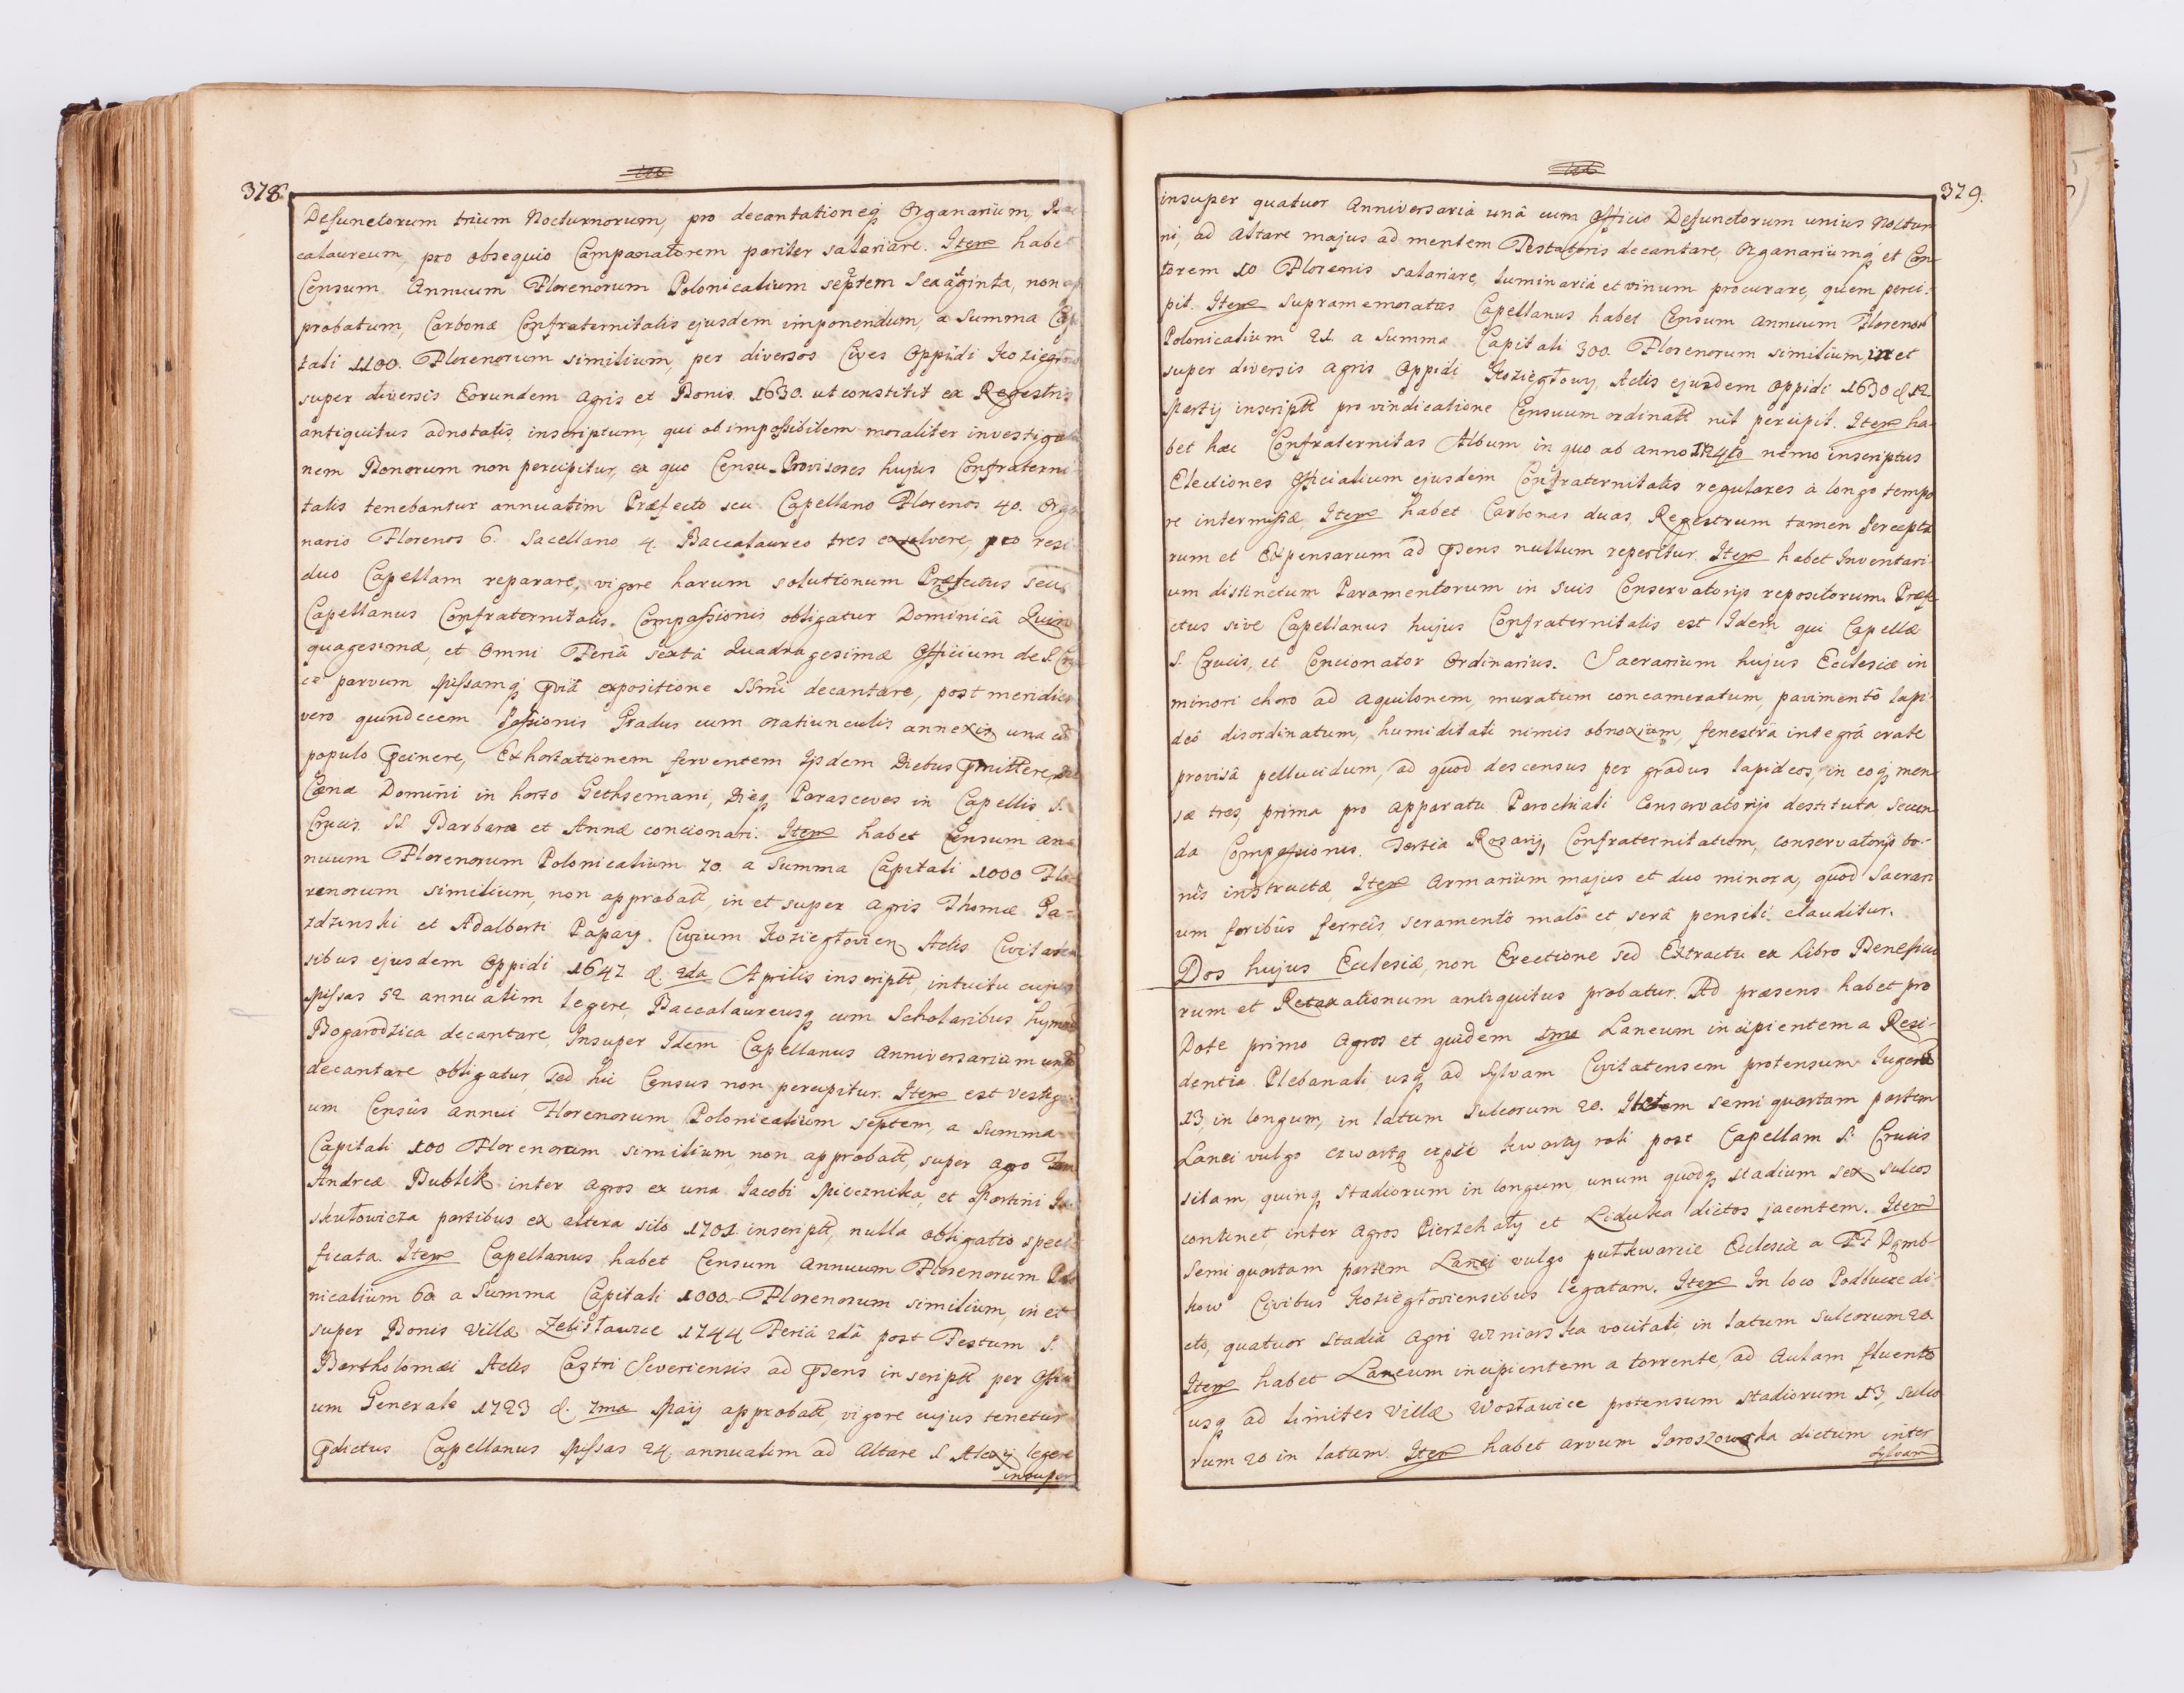 378.
Defunctorum trium Nocturnorum, pro decantationeq Organarium,
calaureum, pro obsequio Campanatorem pariter salariare. Item habet
Censum Annuum Florenorum Polonicalium septem Sexaginta, non
probatum, Carbonæ Confraternitatis ejusdem imponendum, a Summa
tali 1100. Florenorum similium, per diversos Cives Oppidi
super diversis Eorundem Agris et Bonis 1630. ut constitit ex Regestris
antiquitus adnotatis, inscriptum, qui ob impossibilem moraliter
nem Bonorum non percipitur, ex quo Censu Provisores hujus Confraterni
tatis tenebantur annuatim Præfecto seu Capellano Florenos 40.
nario Florenos 6. Sacellano 4. Baccalaureo tres exsolvere, pro resi
duo Capellam reparare, vigore harum solutionum Præfectus seu
Capellanus Confraternitatis Compassionis obligatur Dominicâ Quin
quagesimæ, et Omni Feriâ sextâ Quadragesimæ Officium de S.
ce parvum Missamq expositione SSmi decantare, post meridiem
vero quindecem Passionis Gradus cum oratiunculis annexis una
populo Exhortationem ferventem Ijsdem Diebus
Cænæ Domini in horto Gethsemani, Dieq Parasceves in Capellis S.
Crucis SS. Barbaræ et Annæ concionari. Item habet Censum an
nuum Florenorum Polonicalium 70. a Summa Capitali 1000 Flo
renorum similium, non approbatt, in et super Agris Thomæ
et Adalberti Papaÿ. Civium Koziegłovien Actis
sibus ejusdem Oppidi 1647 d. 2da Aprilis inscriptt, intuitu cujus
Missas 52 annuatim legere, Baccalaureusq cum Scholaribus
Bogarodzica decantare, Insuper Idem Capellanus Anniversarium
decantare obligatur, sed hic Census non percipitur. Item est vestigi
um Censûs annui Florenorum Polonicalium septem, a Summa
Capitali 100 Florenorum similium, non approbatt, super agro
Andreæ Bublik inter Agros ex una Jacobi et Martini
partibus ex altera sito 1701. inscriptt, nulla obligatio speci
ficata. Item Capellanus habet Censum Annuum Florenorum Polo
nicalium 60 a Summa Capitali 1000. Florenorum similium, in et
super Bonis Villæ Zelisławice 1744 Feriâ 2dâ post Festum S.
Bartholomæi Actis Castri Severiensis ad inscriptt per Offici
um Generale 1723 d. 7ma Maij approbatt, vigore cujus tenetur
Capellanus Missas 24 annuatim ad Altare S. Alexij legere
insuper
379.
insuper quatuor Anniversaria unâ cum Officio Defunctorum unius Noctur
ni, ad Altare majus ad mentem Testatoris decantare, Organariumq et Can
torem 10 Florenis salariare, luminaria et vinum procurare, quem perci-
pit. Item supramemoratus Capellanus habet Censum Annuum Florenor
Polonicalium 21 a Summa Capitali 300 Florenorum similium, in et
super diversis agris Oppidi Koziegłowy, Actis ejusdem Oppidi 1630 d 12
Martij inscriptt pro vindicatione Censuum ordinatt nil percipit. Item ha
bet hæc Confraternitas Album in quo ab anno nemo inscriptus
Electiones Officialium ejusdem Confraternitatis regulares à longo tempo
re intermissæ, Item habet Carbonas duas, Regestrum tamen Percepta
rum et Expensarum ad nullum reperitur. Item habet Inventari
um distinctum Paramentorum in suis Conservatorijs repositorum. Præfe
ctus sive Capellanus hujus Confraternitatis est Idem qui Capellæ
S. Crucis, et Concionator Ordinarius. Sacrarium hujus Ecclesiæ in
minori choro ad Aquilonem, muratum concameratum, pavimentô lapi-
deô disordinatum, humiditati nimis obnoxium, fenestrâ integrâ crate
provisâ pellucidum, ad quod descensus per gradus lapideos, in eoq men
sæ tres, prima pro apparatu Parochiali Conservatorijs destituta secun
da Compassionis. Tertia Rosarij Confraternitatum, conservatorijs bo-
nis instructæ, Item Armarium majus et duo minora, quod Sacrari
um foribûs ferreîs seramentô malô et serâ pensili clauditur.
Dos hujus Ecclesiæ, non Erectione sed Extractu ex Libro Beneficio
rum et Retaxationum antiquitus probatur. Ad præsens habet pro
Dote primo Agros et quidem Laneum incipientem a Resi-
dentia Plebanali usq ad Sylvam Civitatensem protensum Jugerû
13, in longum, in latum sulcorum 20. Item semi quartam partem
Lanei vulgo kwarty roli post Capellam S. Crucis
sitam, quinq Stadiorum in longum, unum quodq stadium sex sulcos
continet, inter Agros Pierzchały et Liduka dictos jacentem. Item
Semi quartam partem Lanei vulgo pułkwarcie Ecclesiæ a Damb-
kow Civibus Koziegłoviensibus legatam. Item In loco Podbucze di-
cto, quatuor stadiâ Agri vocitati, in latum Sulcorum 20.
Item habet Laneum incipientem a torrente, ad Aulam fluente
usq ad limites Villæ Wosławice protensum stadiorum 13, sulco
rum 20 in latum. Item habet arvum dictum inter
Sylvam